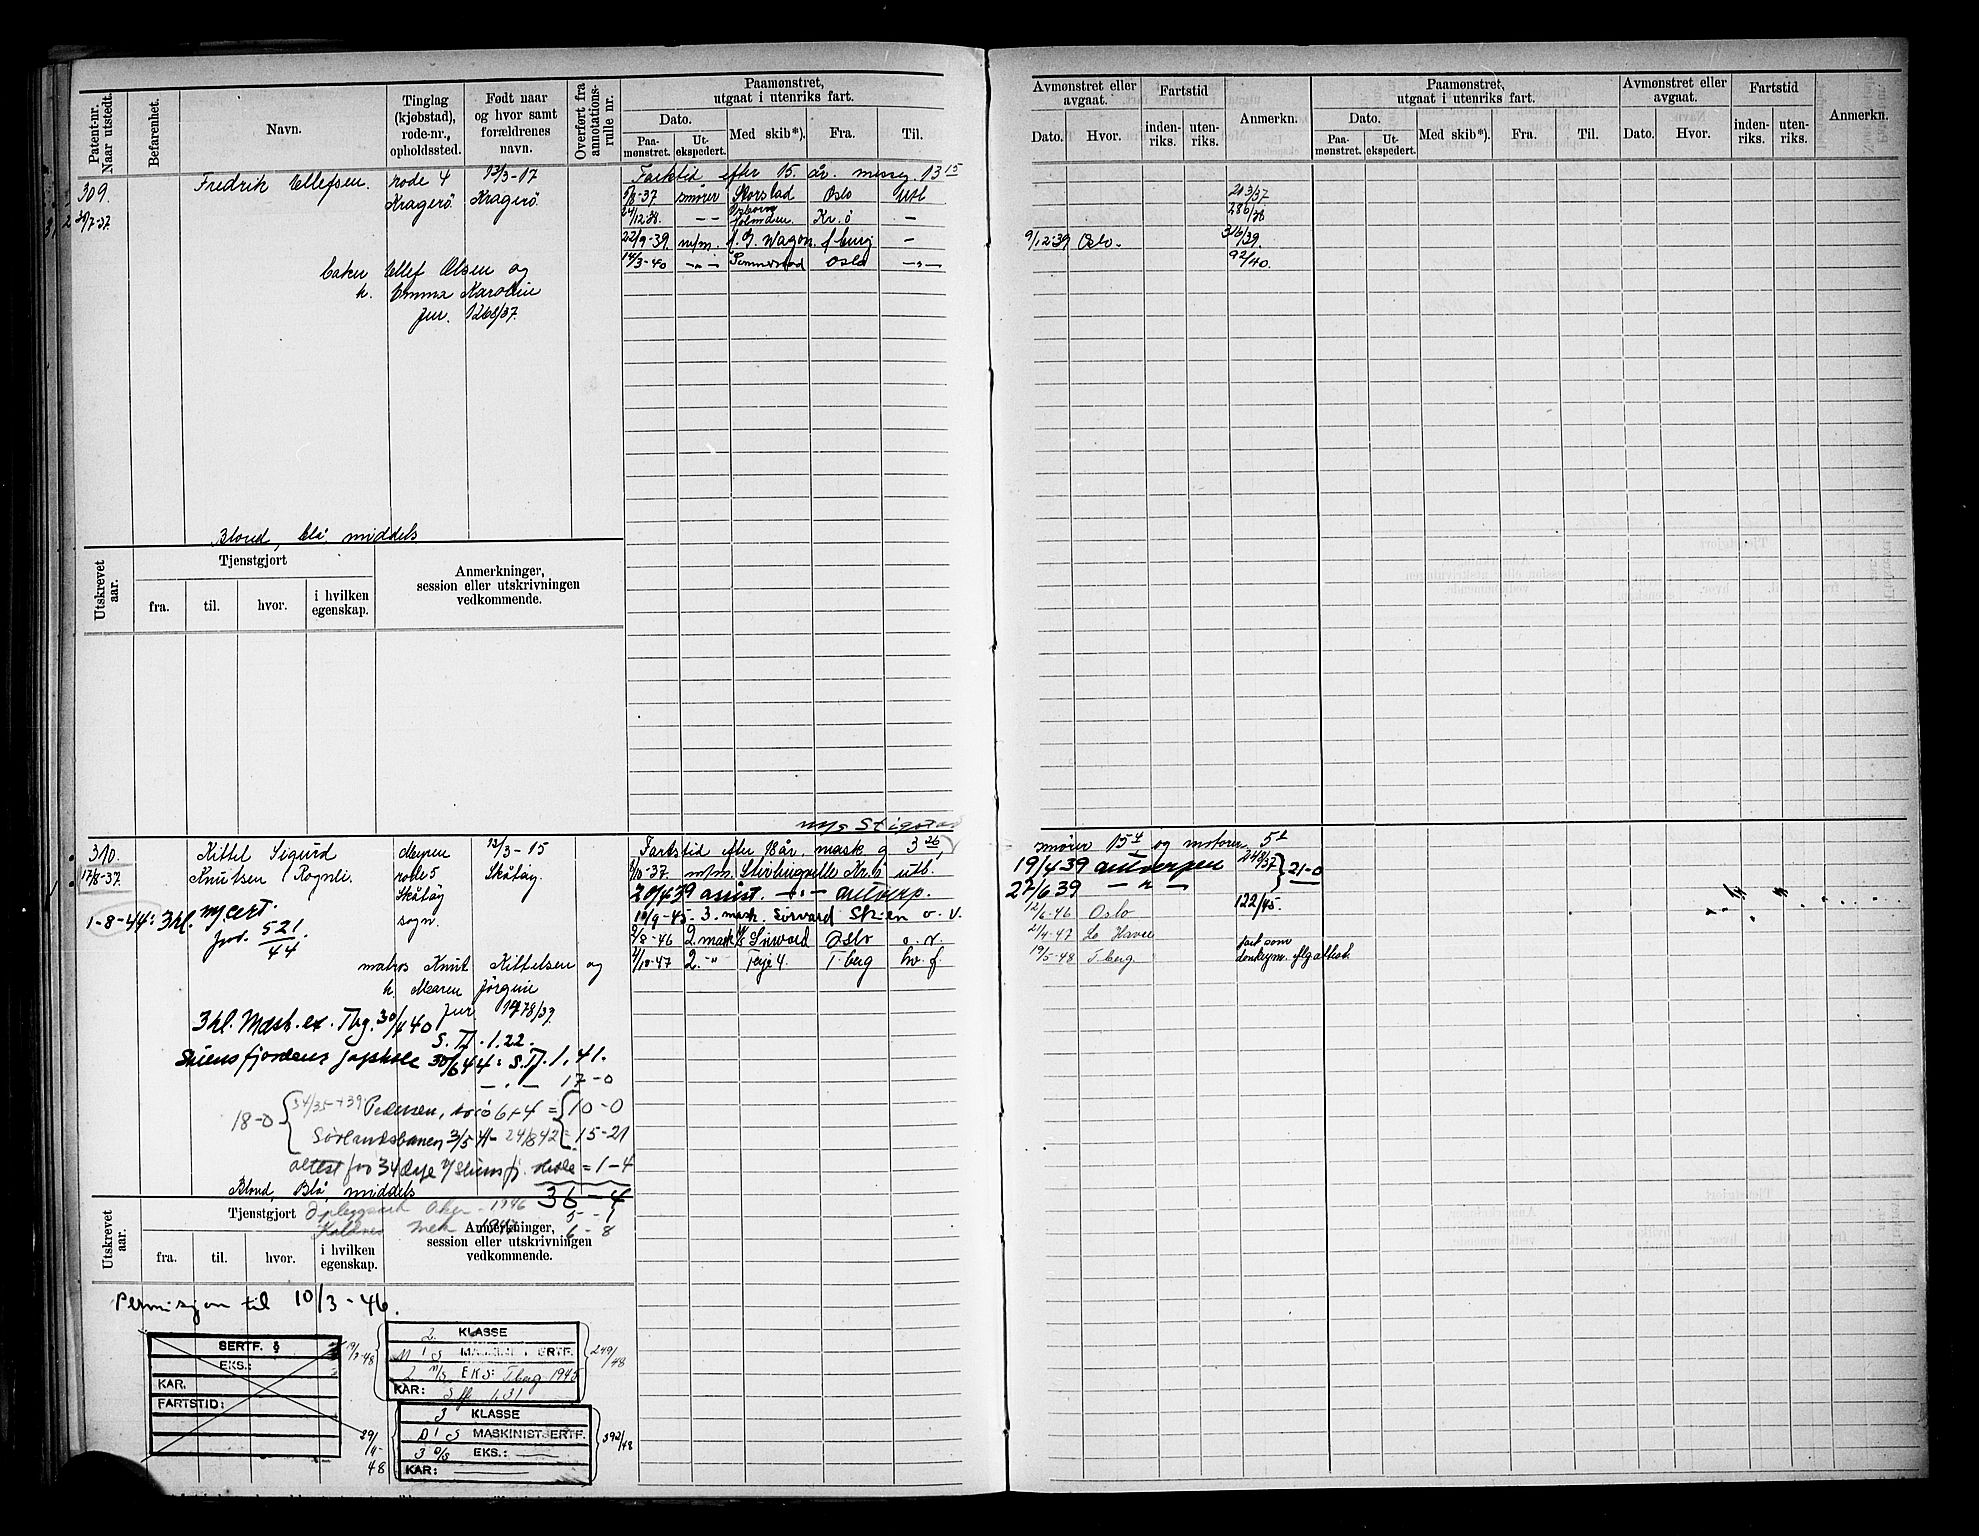 Patent-nr. Naar utstedt.
Befarenhet.
Navn.
Tinglag (kjøbstad), rode-nr., opholdssted.
Født naar og hvor samt forældrenes navn.
Overført fra annotations-rulle nr.
Paamønstret, utgaat i utenriks fart.
Dato.
Paa-mønstret.
Ut-ekspedert.
Med skib*).
Fra.
Til.
Avmønstret eller avgaat.
Dato.
Hvor.
Fartstid
inden-riks.
uten-riks.
Anmerkn.
Paamønstret, utgaat i utenriks fart.
Dato.
Paa-mønstret.
Ut-ekspedert.
Med skib*).
Fra.
Til.
Avmønstret eller avgaat.
Dato.
Hvor.
Fartstid
inden-riks.
uten-riks.
Anmerkn.
309.
30/7-37.
Fredrik Ellefsen.
rode 4
Kragerö
13/3-17
Kragerö
Fartstid efter 15. år. messeg. 13 15
5/8-37 smörer Storstad Oslo utl
213/37
24/12 38. - - Kr.ö -
286/38
22/9-39. m/m. J. G. Wagon. -
9/12-39 Oslo.
316/39.
14/3-40 -"- Sommerstad Oslo -"-
92/40.
baker Ellef Olsen og
h. Emma Karoline
jur. 1268/37.
Blond, blå, middels
Utskrevet aar.
Tjenstgjort
fra.
til.
hvor.
i hvilken egenskap.
Anmerkninger, session eller utskrivningen vedkommende.
310.
17/8-37.
Kittel Sigurd
Knutsen Rognli.
rode 5
Skåtöy
sogn.
13/3-15
Skåtöy.
Fartstid efter 18 år. mask g 3 26
smörer 15 4 og motorm. 5 1
-37. m/m. Stirlingville Kr.ö utl.
19/4 39 Antwerpen 248/37 } 21-0
20/4 39 assist. -"- Antwerp.
27/6 39 - " -
/9-45- 3. mask. Sörvard Skien o. v.
12/6-46 Oslo
122/45.
/8-46 2. mask Oslo o. v.
21/4-47 Le Havre
/10-47 2. -"- Terje 4. T-berg hv. f.
19/5-48 T.berg
fart som
donkeym. iflg attest.
1-8-44: 3 kl.
nycert.
jrd. 521/44
matros Knut Kittelsen og
h. Maren Jörgine
jur. 1478/37.
3 kl. Mask. ex. Tbg. 30/4 40
S. Tj. 1.22.
Skiensfjordens fagskole 30/6 44: S. Tj. 1.41.
-"- 17-0
18-0 { 34/35+39 Pedersen, 6+4 = { 10-0
Sörlandsbanen 3/5 41- 24/8 42 = 15-21
attest for 34 dage = 1-4
36-4
Blond, Blå, middels
Aker 1946 5-1
Mek 6-8
Utskrevet aar.
Tjenstgjort
fra.
til.
hvor.
i hvilken egenskap.
Anmerkninger, session eller utskrivningen vedkommende.
Permisjon til 10/3-46.
SERTF. §
EKS.:
KAR.
FARTSTID:
19/3-48
2. KLASSE
M/S MASKINISTSERTF.
2 m/s EKS: T.berg 1945
KAR: 1.31
249/48
29/11-48
3 KLASSE
D/S MASKINISTSERTF.
3 D/S EKS.:
KAR:
392/48